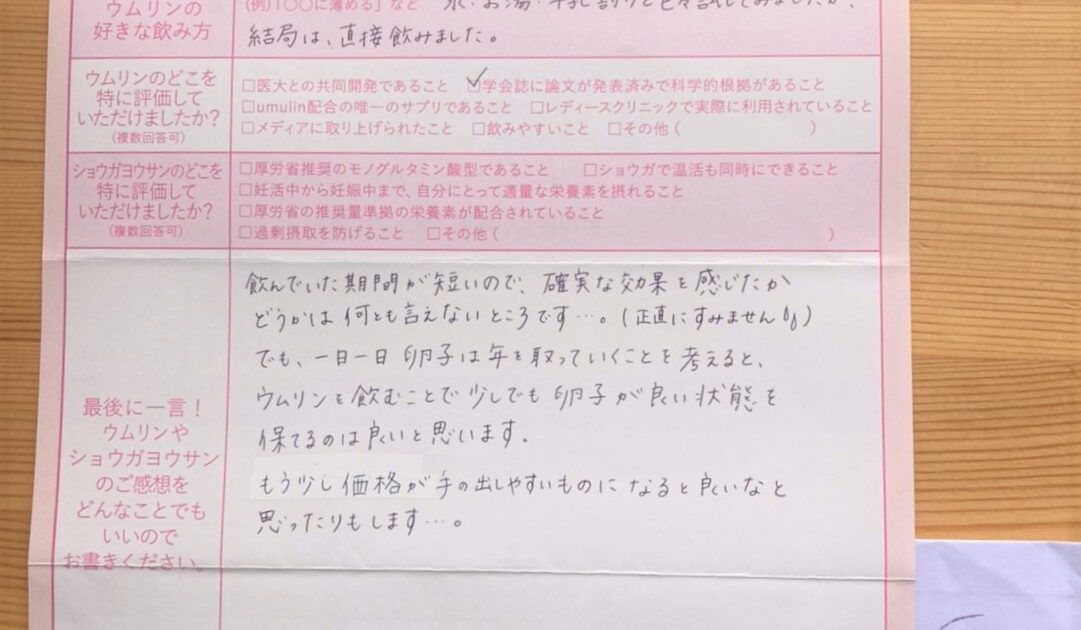 ウムリンの
好きな飲み方
(例)「〇〇に薄める」など
結局は、直接飲みました。
ウムリンのどこを
特に評価して
いただけましたか?
(複数回答可)
□医大との共同開発であること ☑学会誌に論文が発表済みで科学的根拠があること
□umulin配合の唯一のサプリであること □レディースクリニックで実際に利用されていること
□メディアに取り上げられたこと □飲みやすいこと □その他( )
ショウガヨウサンのどこを
特に評価して
いただけましたか?
(複数回答可)
□厚労省推奨のモノグルタミン酸型であること □ショウガで温活も同時にできること
□妊活中から妊娠中まで、自分にとって適量な栄養素を摂れること
□厚労省の推奨量準拠の栄養素が配合されていること
□過剰摂取を防げること □その他( )
最後に一言!
ウムリンや
ショウガヨウサン
のご感想を
どんなことでも
いいので
お書きください。
飲んでいた期間が短いので、確実な効果を感じたか
どうかは何とも言えないところです…。(正直にすみません)
でも、一日一日卵子は年を取っていくことを考えると、
ウムリンを飲むことで少しでも卵子が良い状態を
保てるのは良いと思います。
もう少し価格が手の出しやすいものになると良いなと
思ったりもします…。